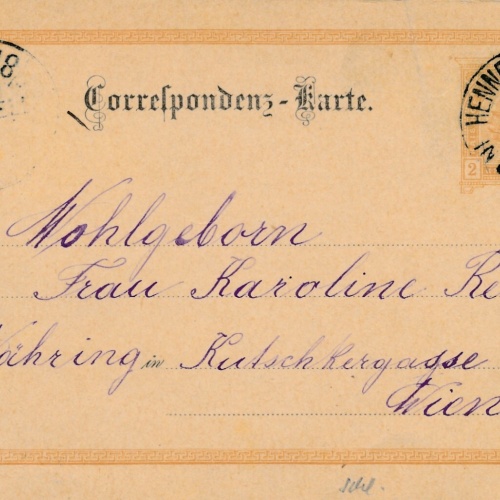 18
Correspondenz-Karte.
HENNE
2
Wohlgeborn
Frau Karoline Re
Währing in Kutschkergasse
Wien